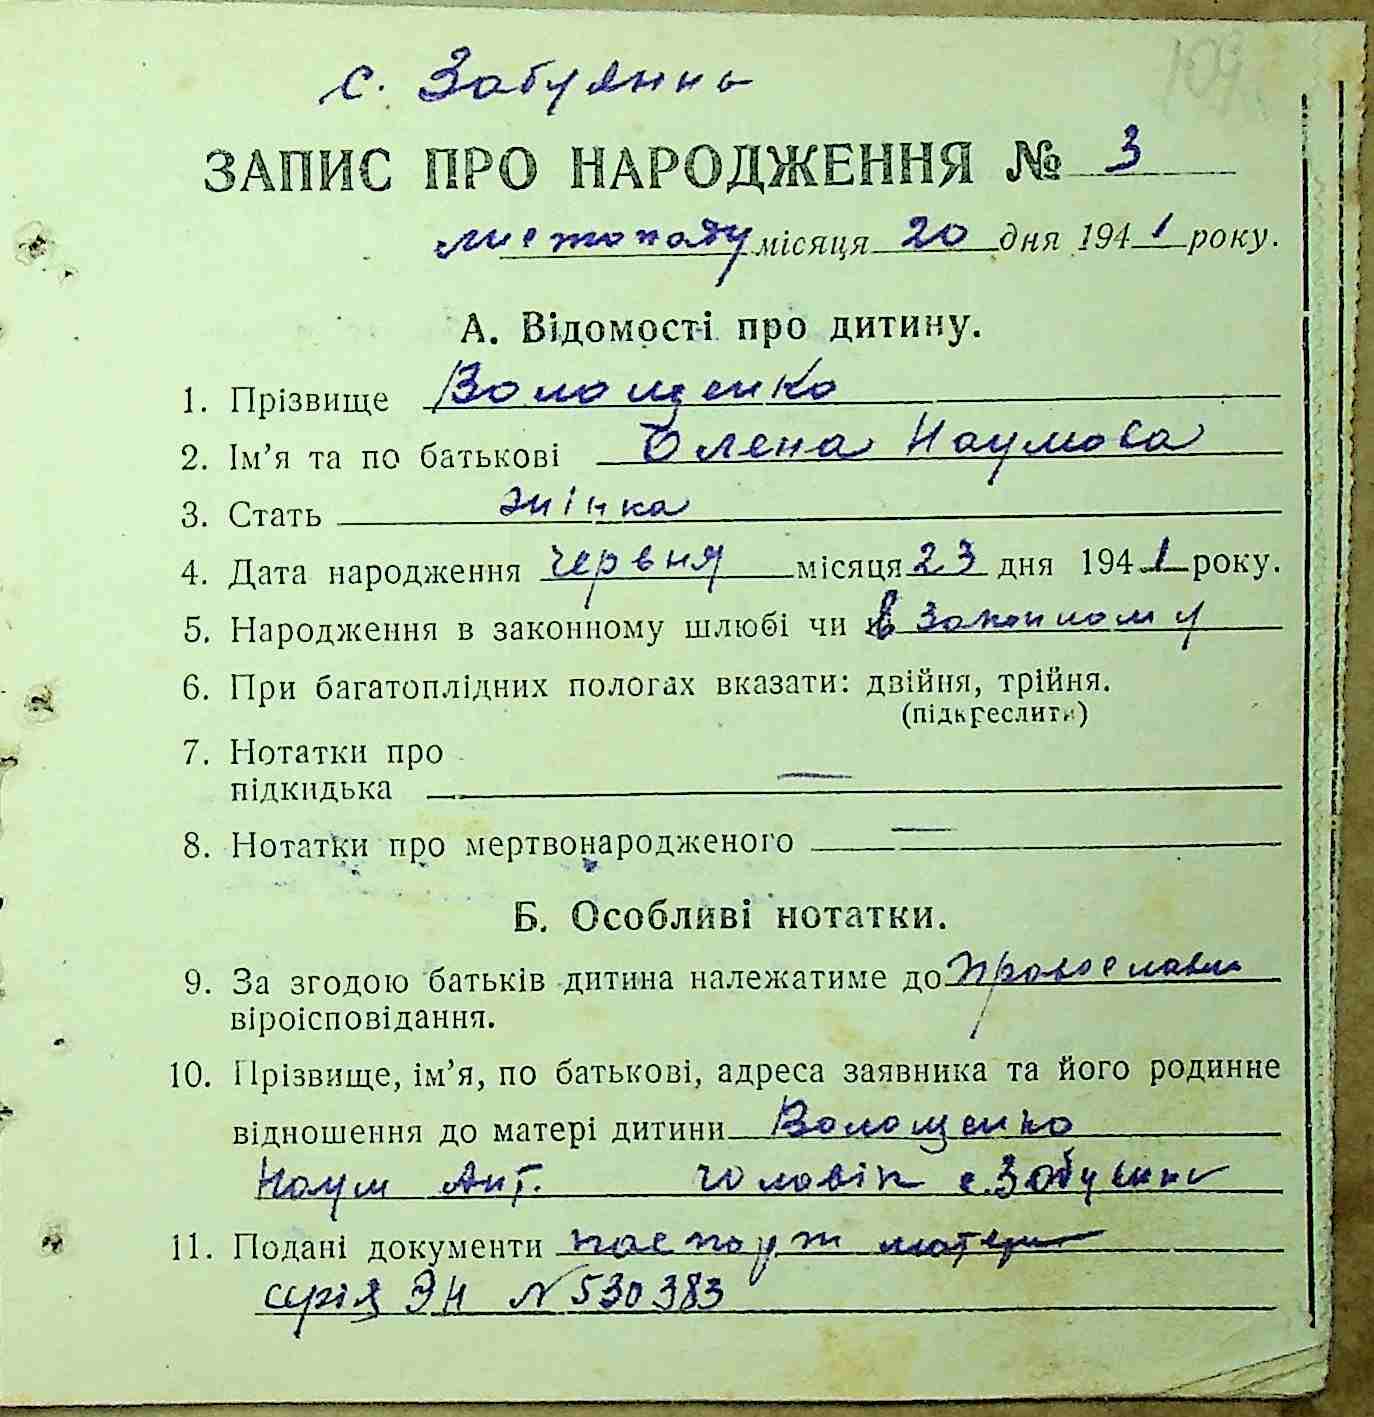 109
с. Забуяннь
ЗАПИС ПРО НАРОДЖЕННЯ № 3
листопаду місяця 20 дня 1941 року.
А. Відомості про дитину.
1. Прізвище Волощенко
2. Ім'я та по батькові Олена Наумова
3. Стать жінка
4. Дата народження червня місяця 23 дня 1941 року.
5. Народження в законному шлюбі чи в законному
6. При багатоплідних пологах вказати: двійня, трійня.
(підкреслити)
7. Нотатки про
підкидька —
8. Нотатки про мертвонародженого —
Б. Особливі нотатки.
9. За згодою батьків дитина належатиме до
віроісповідання.
10. Прізвище, ім'я, по батькові, адреса заявника та його родинне
відношення до матері дитини Волощенко
Наум Ант. чоловік с. Забуянн
11. Подані документи паспорт матери
серія ЭН N 530383